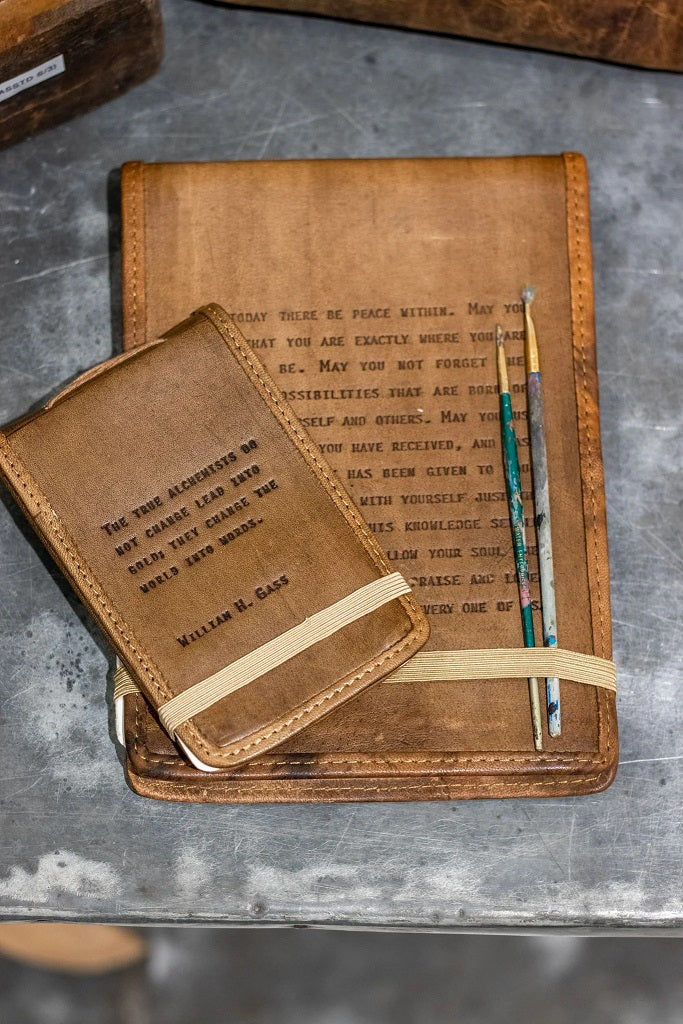 ASSTD 6/31
TODAY THERE BE PEACE WITHIN. MAY YOU
THAT YOU ARE EXACTLY WHERE YOU ARE
BE. MAY YOU NOT FORGET THE
POSSIBILITIES THAT ARE BORN OF
SELF AND OTHERS. MAY YOU US
YOU HAVE RECEIVED, AND PAS
HAS BEEN GIVEN TO YOU
WITH YOURSELF JUST
HIS KNOWLEDGE SE
LLOW YOUR SOUL
PRAISE AND LOVE
EVERY ONE OF US.
THE TRUE ALCHEMISTS DO
NOT CHANGE LEAD INTO
GOLD; THEY CHANGE THE
WORLD INTO WORDS.
WILLIAM H. GASS